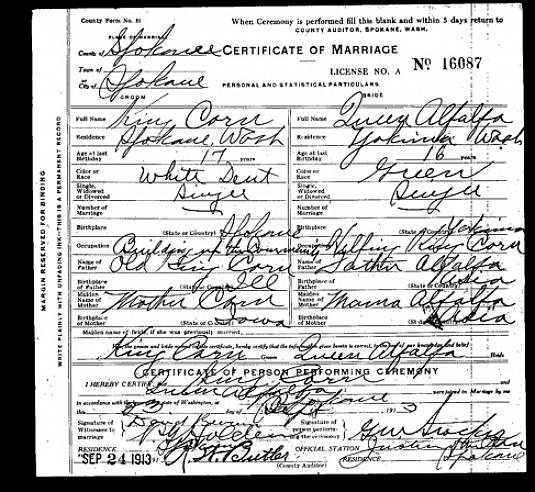 County Form No. 51
When Ceremony is performed fill this blank and within 5 days return to
COUNTY AUDITOR, SPOKANE, WASH.
PLACE OF MARRIAGE
County of Spokane
CERTIFICATE OF MARRIAGE
Town of
City of Spokane
LICENSE NO. A Nº 16087
PERSONAL AND STATISTICAL PARTICULARS
GROOM BRIDE
Full Name King Corn Full Name Queen Alfalfa
Residence Spokane, Wash Residence Yakima Wash
Age at last Birthday 17 years Age at last Birthday 16 years
Color or Race White Dent Color or Race Green
Single, Widowed or Divorced Single Single, Widowed or Divorced Single
Number of Marriage Number of Marriage
Birthplace (State or Country) Spokane Birthplace (State or Country) Yakima
Occupation Building up the Community Occupation Helping King Corn
Name of Father Old King Corn Name of Father Father Alfalfa
Birthplace of Father (State or Country) Ill Birthplace of Father
Maiden Name of Mother Mother Corn Maiden Name of Mother Mama Alfalfa
Birthplace of Mother (State or Country) Iowa Birthplace of Mother
Maiden name of bride, if she was previously married
King Corn Groom Queen Alfalfa Bride
CERTIFICATE OF PERSON PERFORMING CEREMONY
I HEREBY CERTIFY, that King Corn and
Queen Alfalfa were joined in Marriage by me
in accordance with the laws of the State of Washington, at Spokane
this 23 day of Sept 1913
Signature of Witnesses to marriage
Signature of person performing the ceremony
RESIDENCE OFFICIAL STATION
SEP 24 1913 RESIDENCE Spokane
(County Auditor)
MARGIN RESERVED FOR BINDING
WRITE PLAINLY WITH UNFADING INK—THIS IS A PERMANENT RECORD